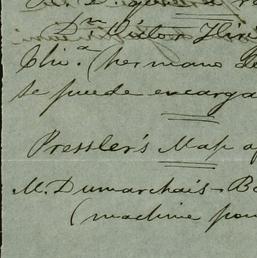 Dn Victor
Chiª. (hermano de
se puede encarga
Pressler's Map of
M. Dumarchais - Bo
(machine pou